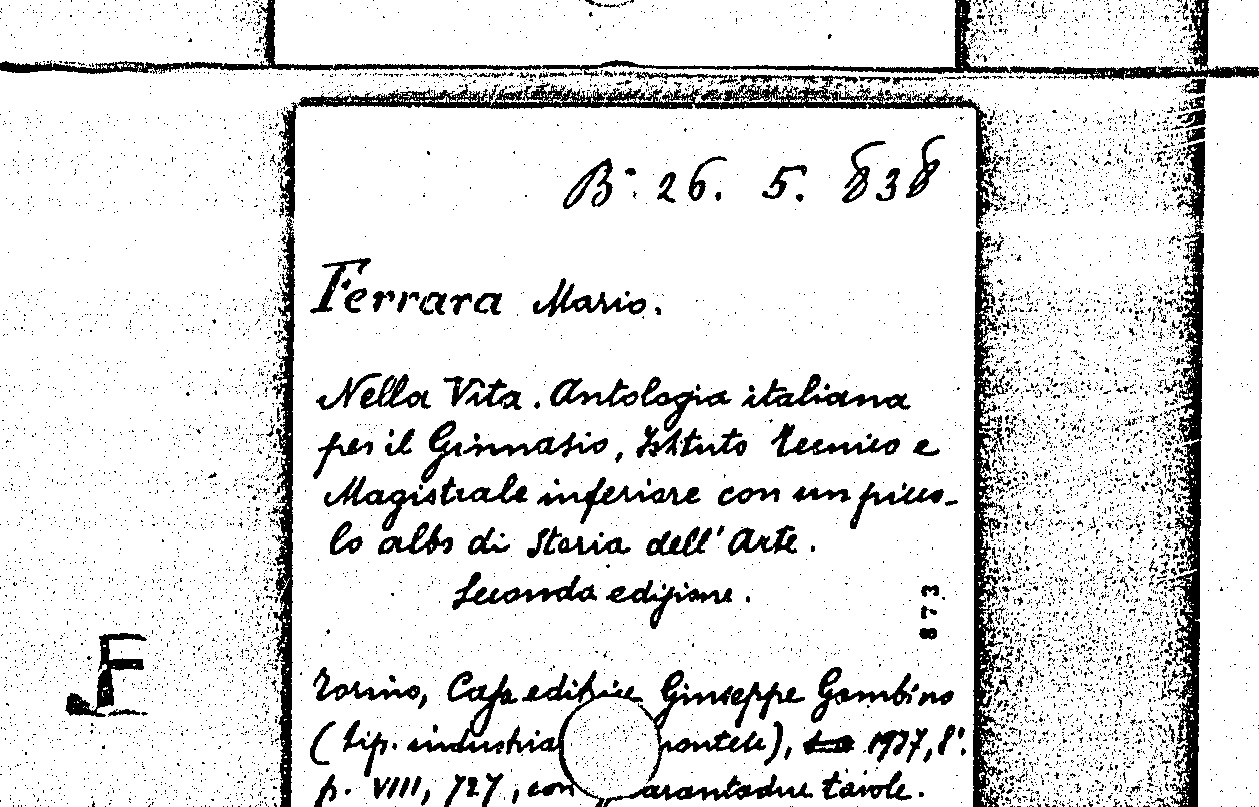 B. 26. 5. 838
Ferrara Mario.
Nella Vita. Antologia italiana
per il Ginnasio, Istituto Tecnico e
Magistrale inferiore con un picco-
lo albo di Storia dell' Arte.
Seconda edizione.
873
F
Torino, Casa editrice Giuseppe Gambino
(tip. industria), 1937, 8°.
p. VIII, 727, con arantadue tavole.